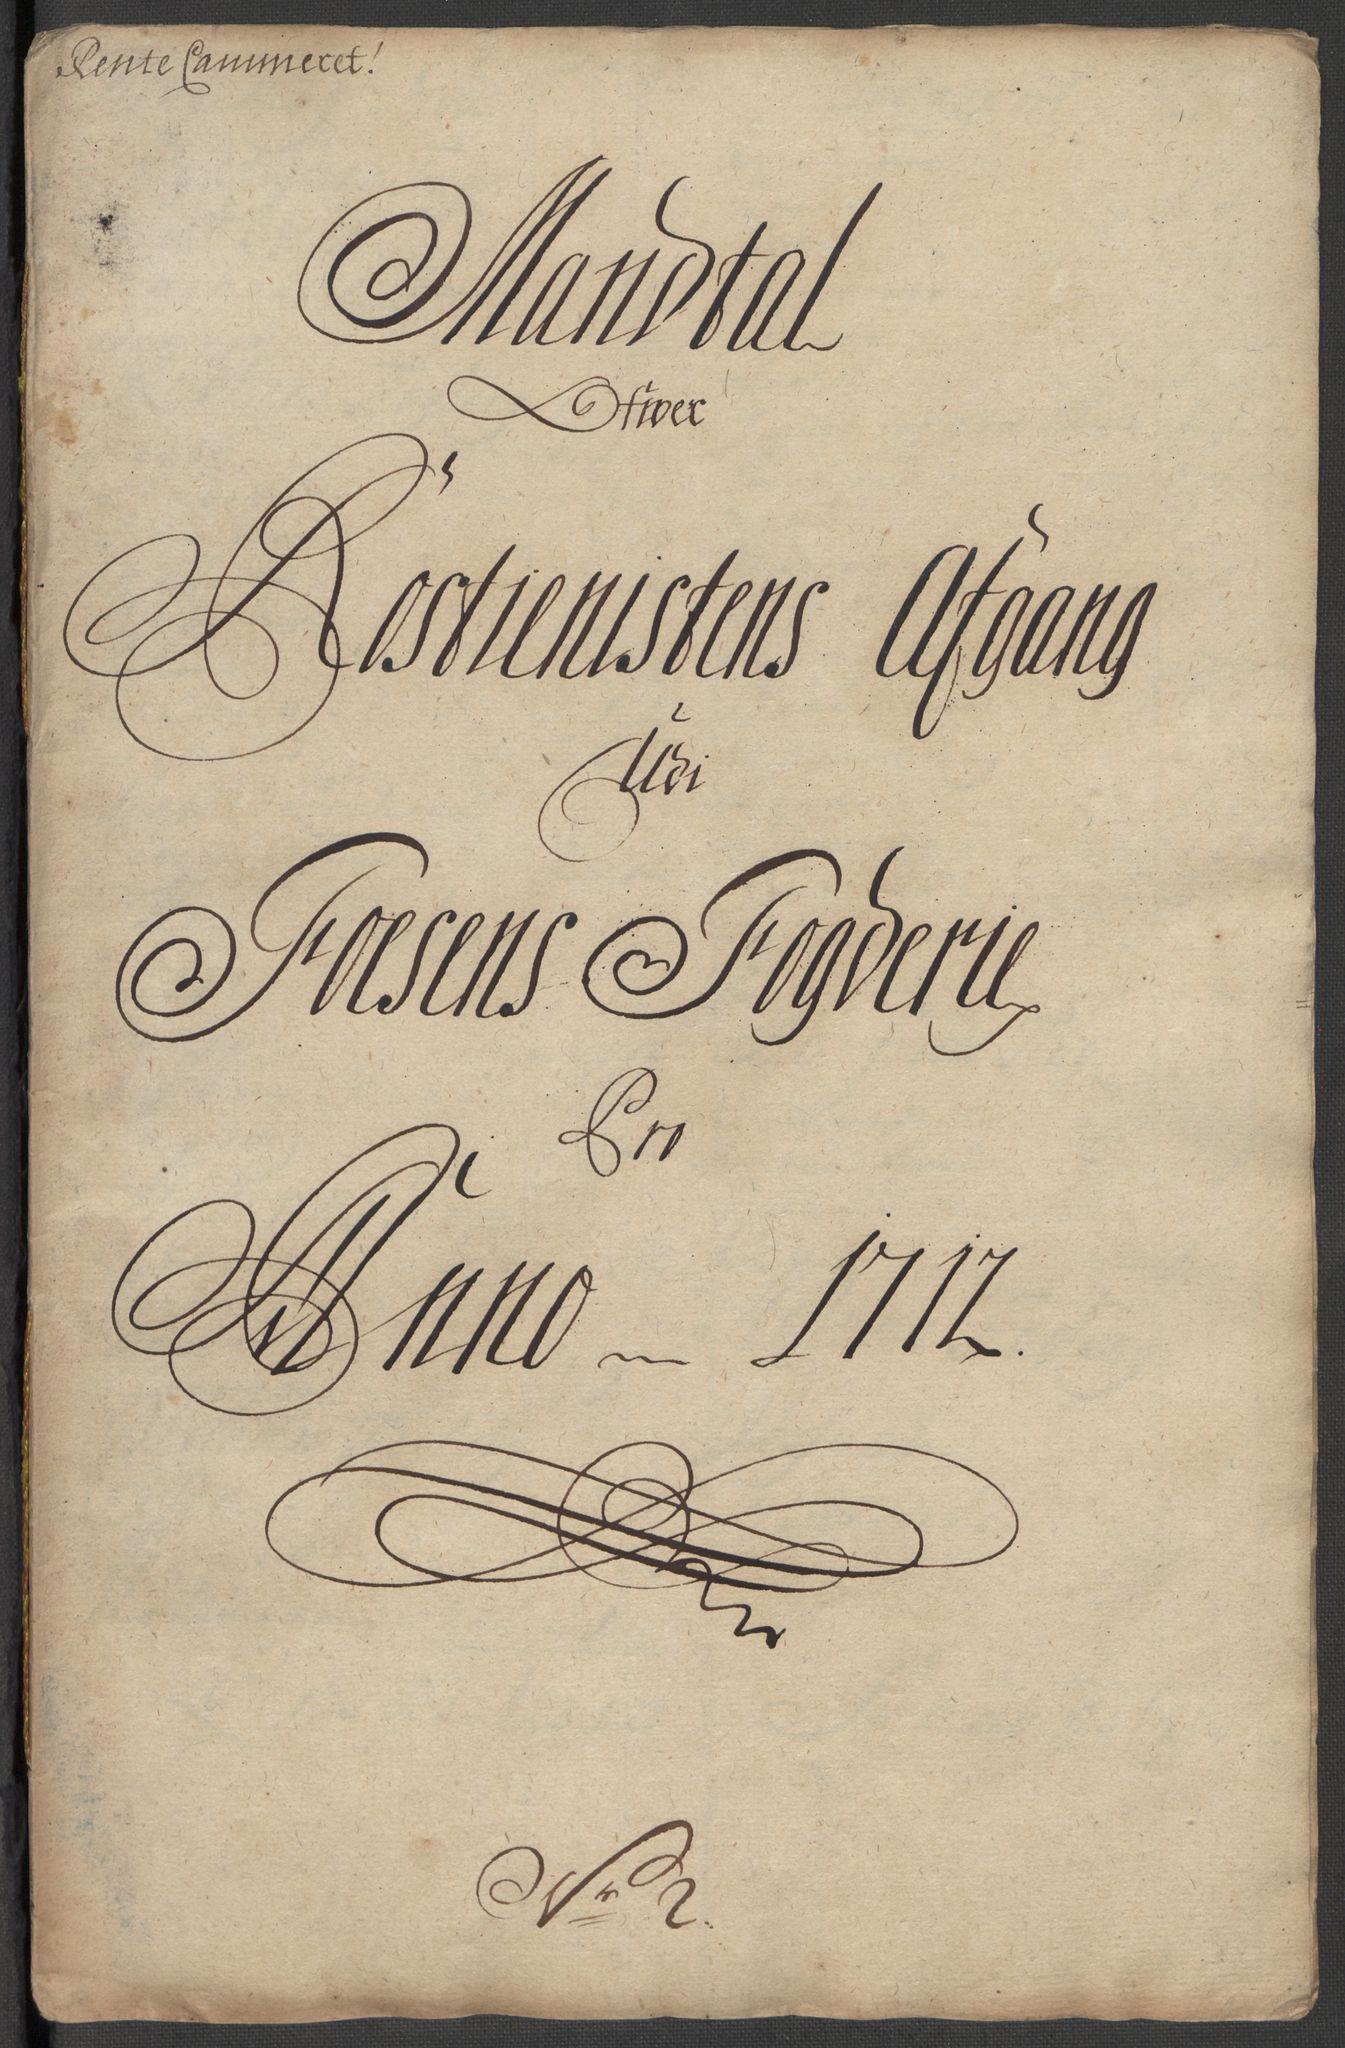 Rente Cammeret!
Mandtal
Ofwer
Rostienistens Afgang
Udi
Foesens Fogderie
Pro
Anno 1712.
Nr 2.